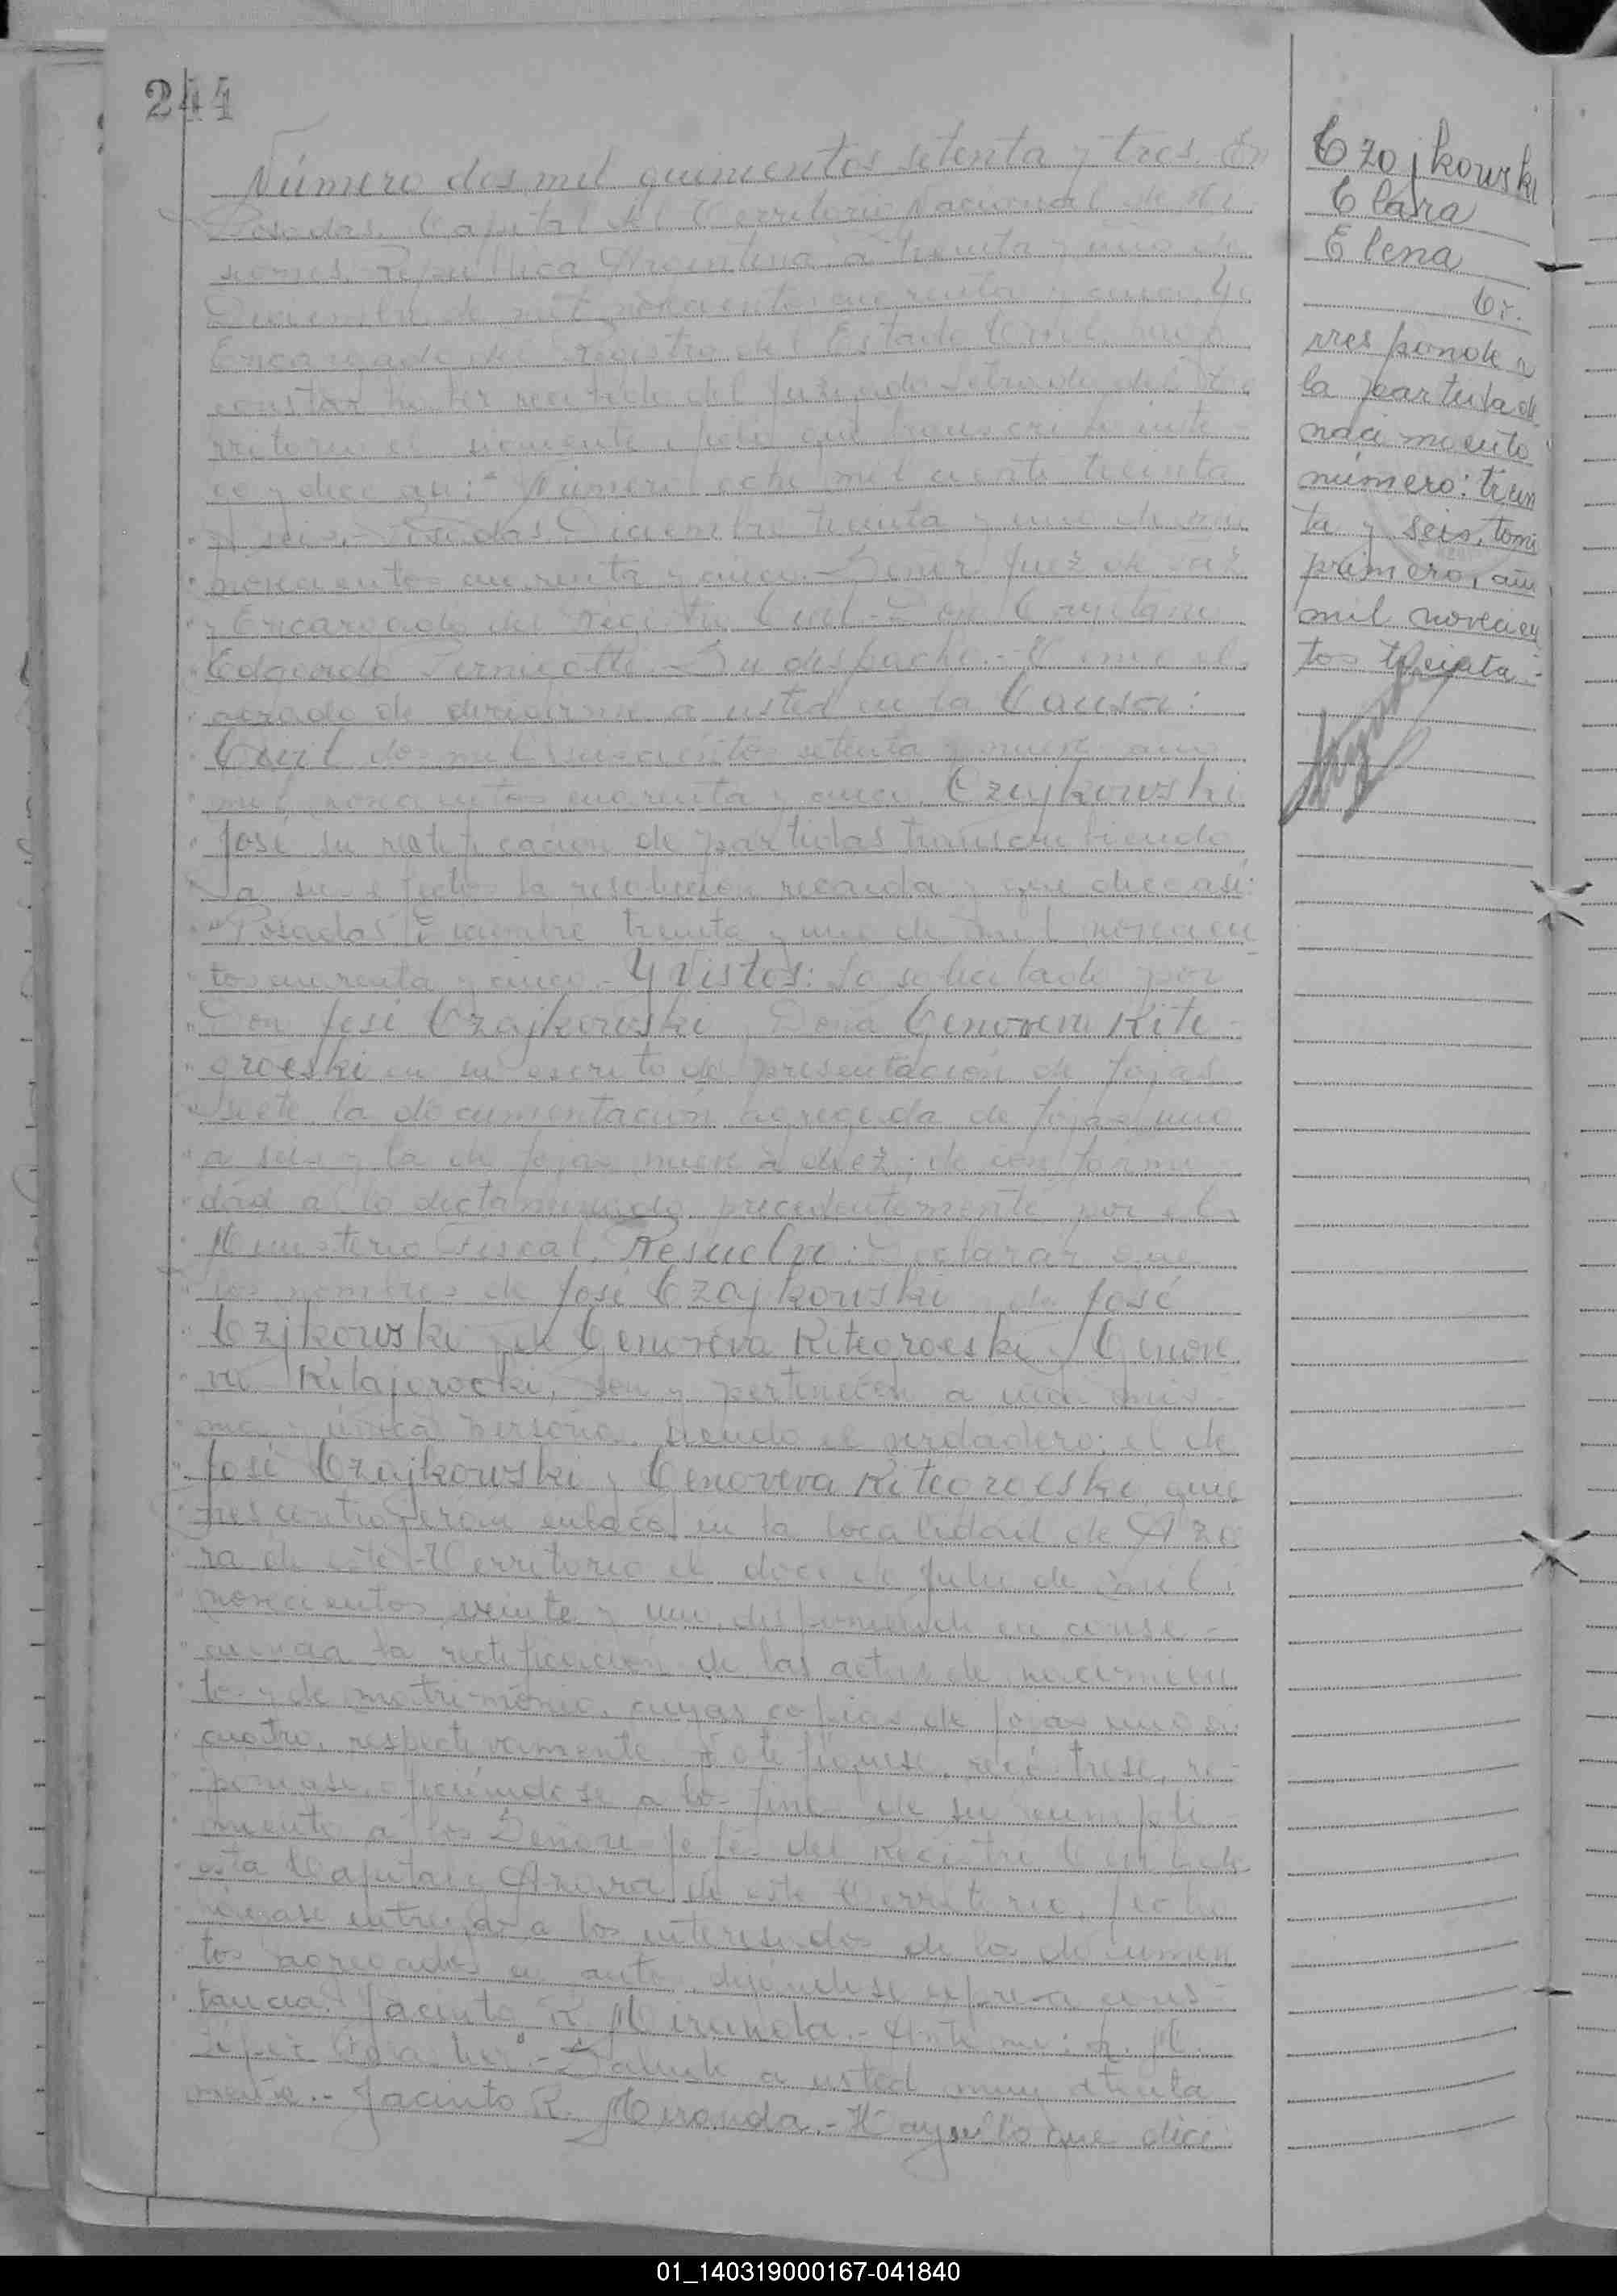 244
Número dos mil quinientos setenta y tres. En
Posadas, Capital del Territorio Nacional de Mi
siones, República Argentina, a treinta y uno de
Diciembre de mil novecientos cuarenta y cinco. Yo
Encargado del Registro del Estado Civil, hago
constar haber recibido del Juzgado Letrado del Te
rritorio el siguiente que
y dice así: "Número ocho mil ciento treinta
y seis.- Posadas, Diciembre treinta y uno de mil
novecientos cuarenta y cinco.- Señor Juez de Paz
y Encargado del Registro Civil - Don Cayetano
Edgardo - Su despacho.- Tengo el
agrado de dirigirme a usted en la Causa:
Civil dos mil setenta y nueve año
mil novecientos cuarenta y cinco, Czajkowski
José su rectificación de partidas transcribiendo
a sus efectos la resolución recaída y que dice así:
"Posadas, Diciembre treinta y uno de mil novecien
tos cuarenta y cinco.- Y Vistos: Lo solicitado por
Don José Czajkowski y Doña Genoveva Kite-
groeski en su escrito de presentación de fojas
siete, la documentación agregada de fojas uno
a seis y la de fojas nueve a diez; de conformi
dad a lo dictaminado precedentemente por el
Ministerio Fiscal, Resuelvo: Declarar que
los nombres de José Czajkowski y de José
Czjkowski y de Genoveva Kitegroeski y Genove
va Kilajerocki, son y pertenecen a una mis
ma y única persona, siendo el verdadero: el de
José Czajkowski y Genoveva Kitegroeski, que
contrajeron enlace en la localidad de Aza
ra de este Territorio el doce de Julio de mil
novecientos veinte y uno, disponiendo en conse-
cuencia la rectificación de las actas de nacimien
to y de matrimonio, cuyas copias de fojas uno a
cuatro, respectivamente. Notifíquese, regístrese, re-
póngase, oficiándose a los fines de su cumpli
miento a los Señores Jefes del Registro Civil de
esta Capital y Azara de este Territorio, fecho
hágase entrega a los interesados de los documen
tos agregados en autos, dejándose expresa cons-
tancia. Jacinto R. Miranda.- Ante mi: M.
Saludo a usted muy atenta
mente.- Jacinto R. Miranda.- Hay sello que dice:
Czojkowski
Clara
Elena
Co-
rresponde a
la partida de
nacimiento
número: trein
ta y seis, tomo
primero, año
mil novecien
tos treinta.-
01_140319000167-041840